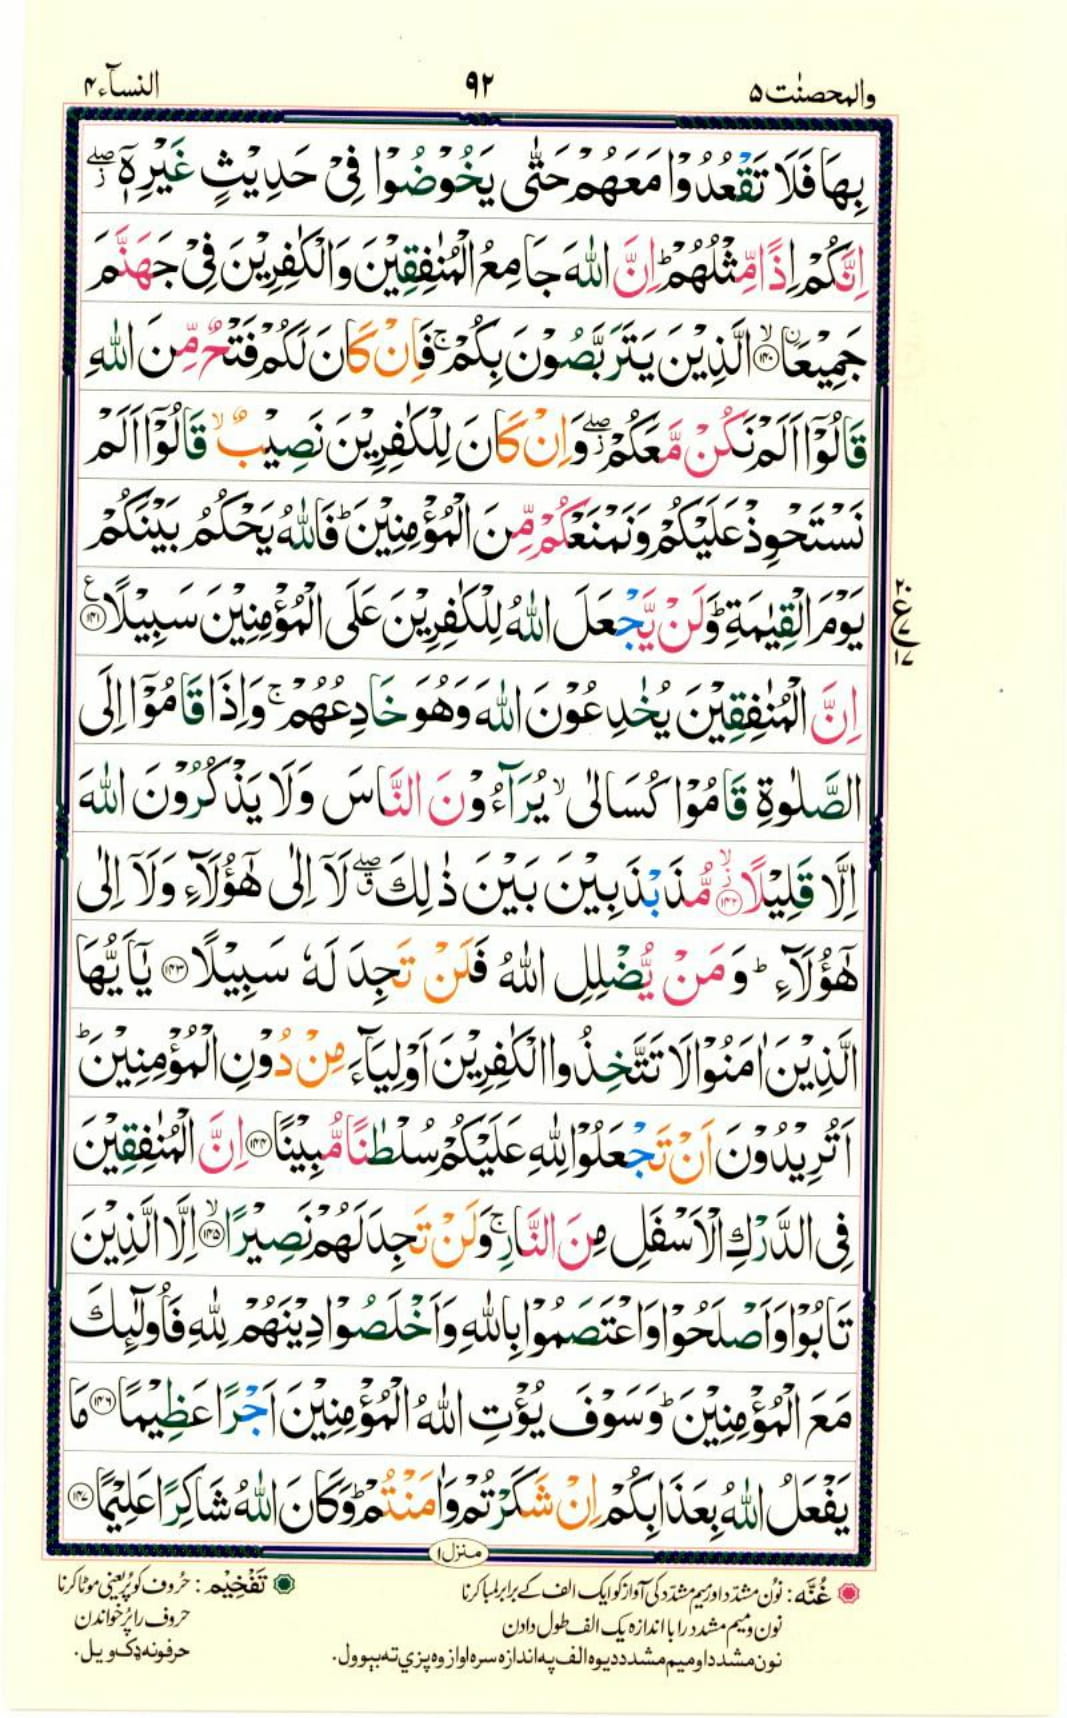 والمحصنٰت ۵
۹۲
النسآء ۴
بِهَا فَلَا تَقْعُدُوْا مَعَهُمْ حَتّٰى يَخُوْضُوْا فِىْ حَدِيْثٍ غَيْرِهٖۤ ۖ
اِنَّكُمْ اِذًا مِّثْلُهُمْ ؕ اِنَّ اللّٰهَ جَامِعُ الْمُنٰفِقِيْنَ وَالْكٰفِرِيْنَ فِىْ جَهَنَّمَ
جَمِيْعَا ۙ‏﴿۱۴۰﴾ الَّذِيْنَ يَتَرَبَّصُوْنَ بِكُمْ ۚ فَاِنْ كَانَ لَكُمْ فَتْحٌ مِّنَ اللّٰهِ
قَالُوْۤا اَلَمْ نَكُنْ مَّعَكُمْ ۖ وَاِنْ كَانَ لِلْكٰفِرِيْنَ نَصِيْبٌ ۙ قَالُوْۤا اَلَمْ
نَسْتَحْوِذْ عَلَيْكُمْ وَنَمْنَعْكُمْ مِّنَ الْمُؤْمِنِيْنَ ؕ فَاللّٰهُ يَحْكُمُ بَيْنَكُمْ
يَوْمَ الْقِيٰمَةِ ؕ وَلَنْ يَّجْعَلَ اللّٰهُ لِلْكٰفِرِيْنَ عَلَى الْمُؤْمِنِيْنَ سَبِيْلًا ﴿۱۴۱﴾ ع
۲۰
ع
۷
۱۷
اِنَّ الْمُنٰفِقِيْنَ يُخٰدِعُوْنَ اللّٰهَ وَهُوَ خَادِعُهُمْ ۚ وَاِذَا قَامُوْۤا اِلَى
الصَّلٰوةِ قَامُوْا كُسَالٰى ۙ يُرَآءُوْنَ النَّاسَ وَلَا يَذْكُرُوْنَ اللّٰهَ
اِلَّا قَلِيْلًا ۙ﴿۱۴۲﴾ مُّذَبْذَبِيْنَ بَيْنَ ذٰلِكَ ۖ لَاۤ اِلٰى هٰٓؤُلَآءِ وَلَاۤ اِلٰى
هٰٓؤُلَآءِ ؕ وَمَنْ يُّضْلِلِ اللّٰهُ فَلَنْ تَجِدَ لَهٗ سَبِيْلًا ﴿۱۴۳﴾ يٰۤاَيُّهَا
الَّذِيْنَ اٰمَنُوْا لَا تَتَّخِذُوا الْكٰفِرِيْنَ اَوْلِيَآءَ مِنْ دُوْنِ الْمُؤْمِنِيْنَ ؕ
اَتُرِيْدُوْنَ اَنْ تَجْعَلُوْا لِلّٰهِ عَلَيْكُمْ سُلْطٰنًا مُّبِيْنًا ﴿۱۴۴﴾ اِنَّ الْمُنٰفِقِيْنَ
فِى الدَّرْكِ الْاَسْفَلِ مِنَ النَّارِ ۚ وَلَنْ تَجِدَ لَهُمْ نَصِيْرًا ۙ﴿۱۴۵﴾ اِلَّا الَّذِيْنَ
تَابُوْا وَاَصْلَحُوْا وَاعْتَصَمُوْا بِاللّٰهِ وَاَخْلَصُوْا دِيْنَهُمْ لِلّٰهِ فَاُولٰٓئِكَ
مَعَ الْمُؤْمِنِيْنَ ؕ وَسَوْفَ يُؤْتِ اللّٰهُ الْمُؤْمِنِيْنَ اَجْرًا عَظِيْمًا ﴿۱۴۶﴾ مَا
يَفْعَلُ اللّٰهُ بِعَذَابِكُمْ اِنْ شَكَرْتُمْ وَاٰمَنْتُمْ ؕ وَكَانَ اللّٰهُ شَاكِرًا عَلِيْمًا ﴿۱۴۷﴾
منزل ۱
غُنّه: نوُن مشدّد اور میم مشدّد کی آواز کو ایک الف کے برابر لمبا کرنا
نون و میم مشدد را با اندازه یک الف طول دادن
نون مشدد او میم مشدد دیوه الف په اندازه سره اواز وه پزي ته بېوول.
تَفْخِیْم: حرُوف کو پُر یعنی موٹا کرنا
حروف را پُر خواندن
حرفونه ډک ویل.